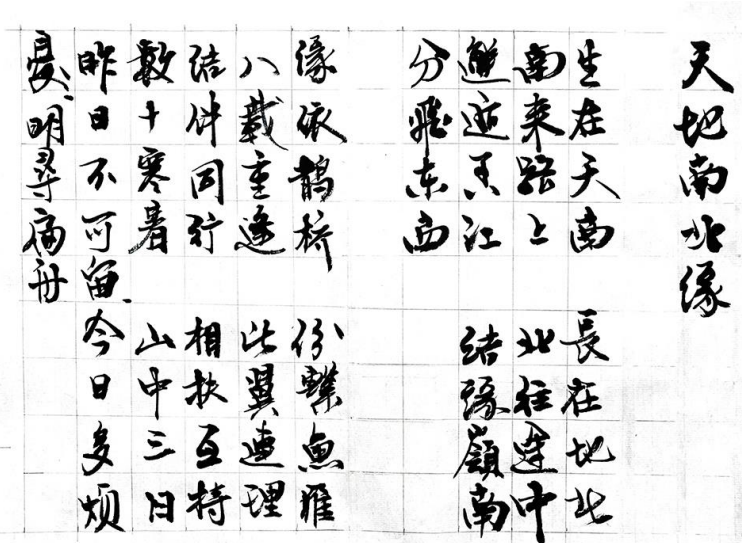 天地南北緣
生在天南 長在地北
南来路上 北往途中
邂逅香江 结緣嶺南
分飛东西
緣依鵲桥 份蝶魚雁
八載重逢 比翼連理
结伴同行 相扶互持
數十寒暑 山中三日
昨日不可留、今日多烦
憂、明尋扁舟